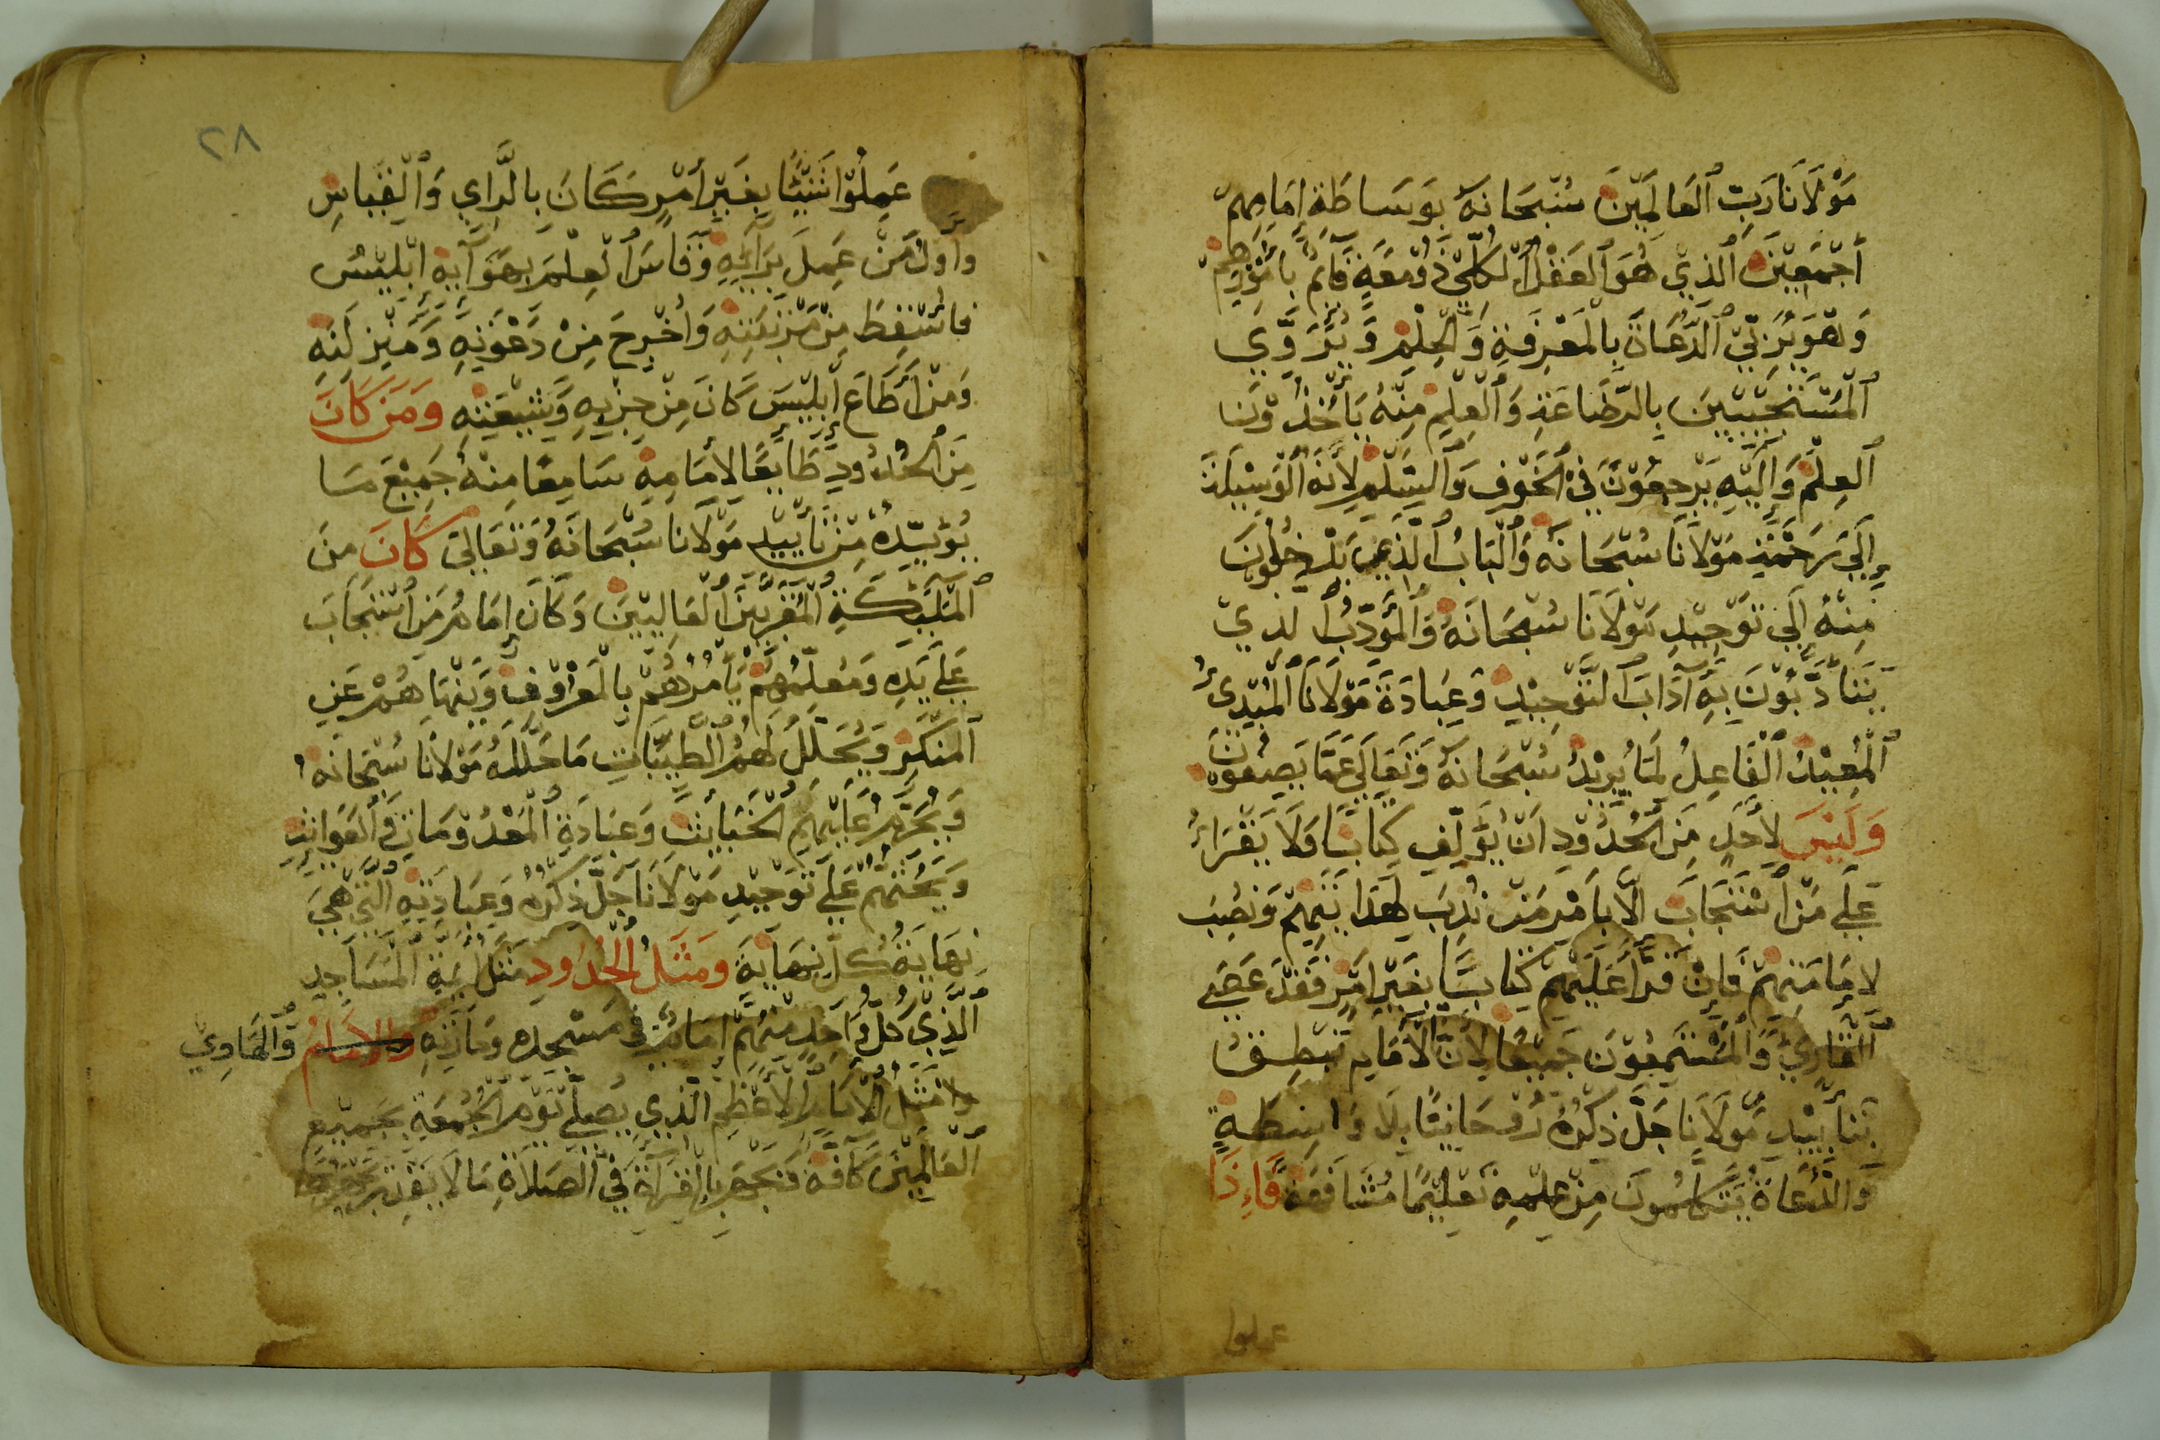 مَوْلَانَا رَبِّ ٱلعَالَمِيْنَ سُبْحَانَهُ بِوَسَاطَةِ إِمَامِهِمْ
أَجْمَعِيْنَ ٱلَّذِيْ هُوَ ٱلعَقْلُ ٱلكُلِّيُّ ذُوْمَعَةٍ قَآئِمٌ بِأُمُوْرِهِمْ
وَهْوَ يُرَبِّيْ ٱلدُّعَاةَ بِالمَعْرِفَةِ وَٱلحِلْمِ وَيُرَوِّي
ٱلمُسْتَجِيْبِيْنَ بِالرَّضَاعَةِ وَٱلْعِلْمِ مِنْهُ يَأْخُذُوْنَ
ٱلعِلْمَ وَإِلَيْهِ يَرْجِعُوْنَ فِيْ ٱلخَوْفِ وَٱلسِّلْمِ لِأَنَّهُ ٱلوَسِيْلَةُ
إِلَىٰ رَحْمَةِ مَوْلَانَا سُبْحَانَهُ وَٱلبَابُ ٱلَّذِي يَدْخُلُوْنَ
مِنْهُ إِلَى تَوْحِيْدِ مَوْلَانَا سُبْحَانَهُ وَٱلمُؤَدِّبُ ٱلَّذِيْ
يَتَأَدَّبُوْنَ بِهِ آدَابَ ٱلتَّوْحِيْدِ وَعِبَادَةَ مَوْلَانَا ٱلمُبْدِئُ
ٱلمُعِيْدُ ٱلفَاعِلُ لِمَا يُرِيْدُ سُبْحَانَهُ وَتَعَالَى عَمَّا يَصِفُونَ
وَلَيْسَ لِأَحَدٍ مِنَ ٱلحُدُوْدِ انْ يُؤَلِّفَ كِتَابًا وَلَا يَقْرَاءُ
عَلَى مَنْ ٱسْتَجَابَ الَّا بِأَمْرِ مَنْ نُدِبَ لِهَدَايَتِهِمْ وَنُصِبَ
لِإِمَامَتِهِمْ فَإِنْ قَرَأَ عَلَيْهِمْ كِتَابًا بِغَيْرِ أَمْرٍ فَقَدْ عَصَى
ٱلقَارِئُ وَٱلمُسْتَمِعُوْنَ جَمِيْعًا لِأَنَّ ٱلأَمَامَ يَنْطِقُ
بِتَأْيِيْدِ مَوْلَانَا جَلَّ ذِكْرُهُ رُوْحَانِيًّا بِلَا وَاسِطَةٍ
وَالدُّعَاةُ يَتَكَلَّمُونَ مِنْ عِلْمِهِ تَعْلِيْمًا مُشَافَهَةً فَإِذَا
عملوا
٢٨
عَمِلُوْا شَيْئًا بِغَيْرِ أَمْرٍ كَانَ بِالرَّايِ وَٱلْقِيَاسِ
وَأَوَّلُ مَنْ عَمِلَ بِرَأْيِهِ وَقَاسَ ٱلْعِلْمَ بِهَوَآيِهِ ابْلِيْسُ
فَأُسْقِطَ مِنْ مَرْتَبَتِهِ وَأُخْرِجَ مِنْ دَعْوَتِهِ وَمَنْزِلَتِهِ
وَمَنْ أَطَاعَ أَبْلِيْسَ كَانَ مِنْ حِزْبِهِ وَشِيْعَتِهِ وَمَنْ كَانَ
مِنَ ٱلحُدُودِ طَايِعًا لِأَمَامِهِ سَامِعًا مِنْهُ جَمِيْعَ مَا
يُؤَيِّدُهُ مِنْ تَأْيِيْدِ مَوْلَانَا سُبْحَانَهُ وَتَعَالَى كَانَ مِنَ
ٱلمَلَايِكَةِ ٱلمُقَرَّبِيْنَ ٱلعَالِيِّيْنَ وَكَانَ إِمَامُ مَنِ ٱسْتَجَابَ
عَلَى يَدِهِ وَمُعَلِّمَهُمْ يَأْمُرُهُمْ بِالمَعْرُوْفِ وَيَنْهَاهُمْ عَنِ
ٱلمُنْكَرِ وَيُحَلِّلُ لَهُمُ ٱلطَّيِّبَاتِ مَا حَلَّلَهُ مَوْلَانَا سُبْحَانَهُ
وَيُحَرِّمُ عَلَيْهِمُ ٱلْخَبَايِثَ وَعِبَادَةِ ٱلمَعْدُوْمَاتِ
وَيَحُثُّهُمْ عَلَى تَوْحِيْدِ مَوْلَانَا جَلَّ ذِكْرُهُ وَعِبَادَتِهِ ٱلَّتِيْ هِيَ
نِهَايَةُ كُلِّ نِهَايَةٍ وَمَثَلُ ٱلْحُدُودِ مَثَلُ أَيِمَّةِ ٱلمَسَاجِدِ
ٱلَّذِيْ كُلُّ وَاحِدٍ مِنْهُمْ إِمَامٌ فِي مَسْجِدِهِ وَحَارَتِهِ وَالأَمَامُ وَٱلهَادِيْ
مَثَلُ ٱلأَمَامِ ٱلأَعْظَمِ ٱلَّذِي يُصَلِّيْ يَوْمَ ٱلجُمْعَةِ بِجَمِيْعِ
ٱلعَالَمِيْنَ كَآفَّةً فَيَجْهَرُ بِٱلقِرَآةِ فِيْ ٱلصَّلَاةِ مَا لَا يَقْدِرُ